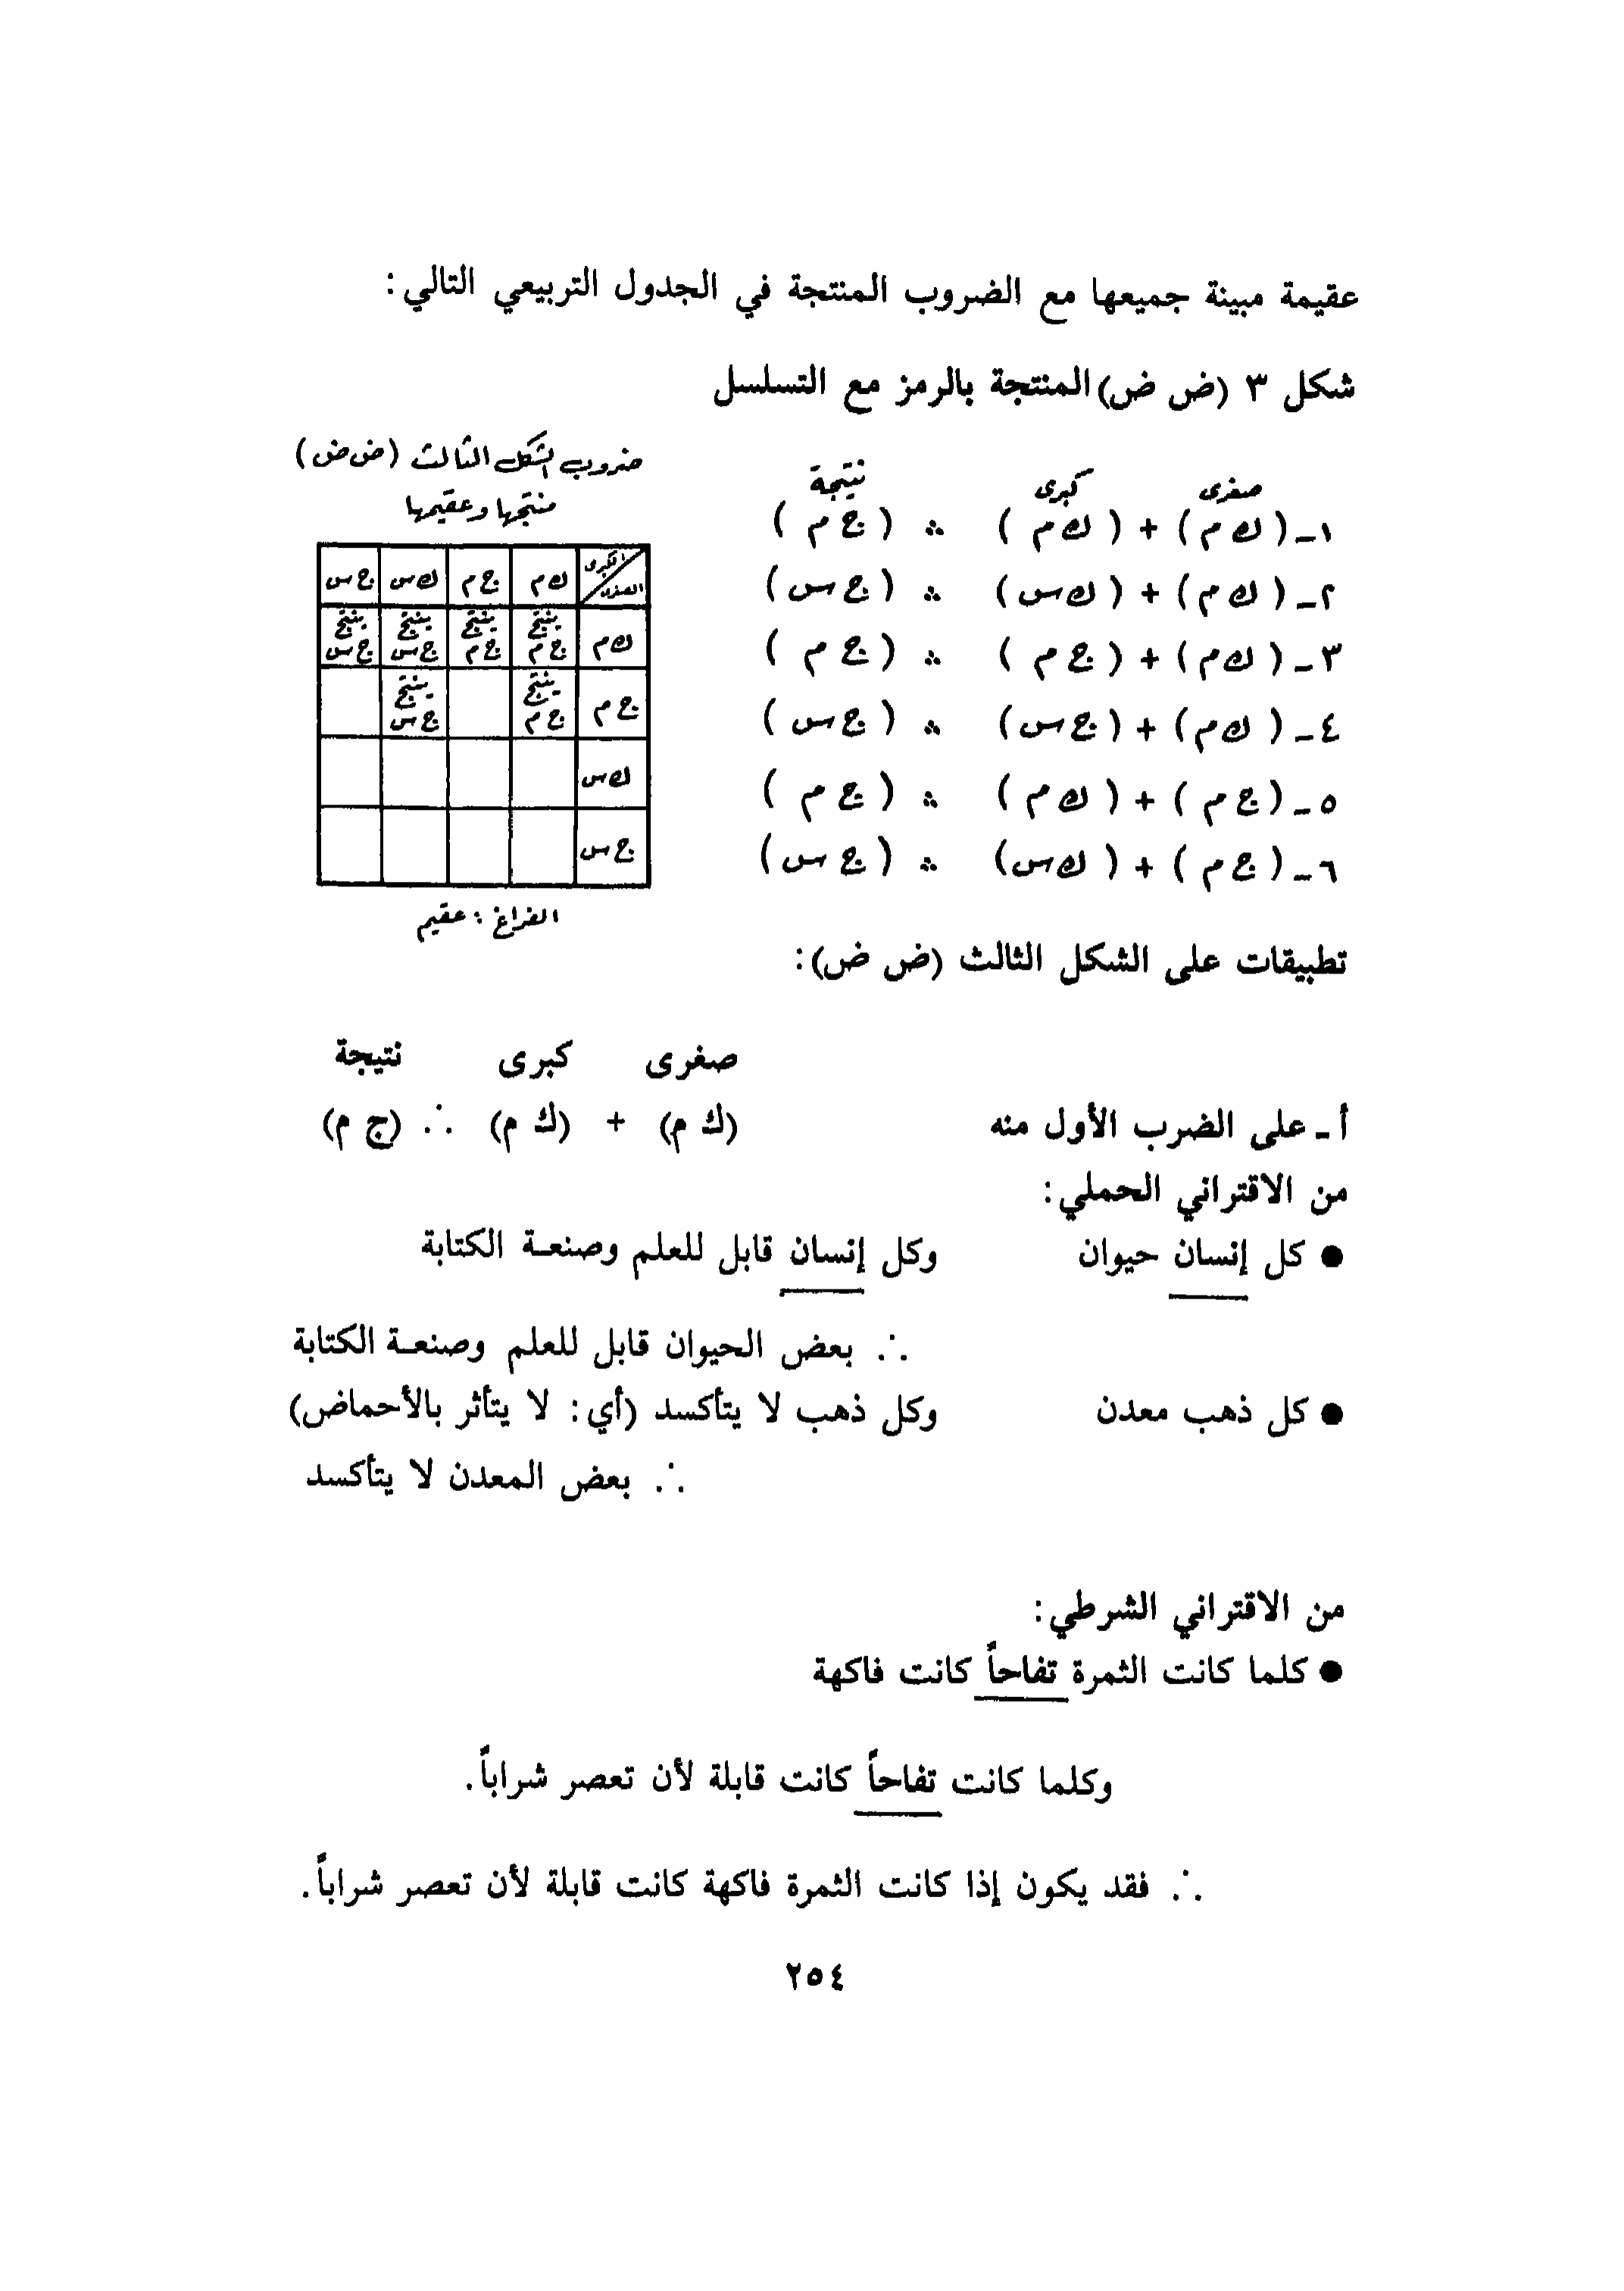 عقيمة مبينة جميعها مع الضروب المنتجة في الجدول التربيعي التالي:
شكل ٣ (ض ض) المنتجة بالرمز مع التسلسل
صغرى كبرى نتيجة
١ـ (ك م) + (ك م) ∴ (ج م)
٢ـ (ك م) + (ك س) ∴ (ج س)
٣ـ (ك م) + (ج م) ∴ (ج م)
٤ـ (ك م) + (ج س) ∴ (ج س)
٥ـ (ج م) + (ك م) ∴ (ج م)
٦ـ (ج م) + (ك س) ∴ (ج س)
ضروب الشكل الثالث (ض ض)
منتجها وعقيمها
الكبرى
الصغرى
ك م ج م ك س ج س
ك م ينتج ج م ينتج ج م ينتج ج س ينتج ج س
ج م ينتج ج م ينتج ج س
ك س
ج س
الفراغ : عقيم
تطبيقات على الشكل الثالث (ض ض):
صغرى كبرى نتيجة
أ ـ على الضرب الأول منه (ك م) + (ك م) ∴ (ج م)
من الاقتراني الحملي:
● كل إنسان حيوان وكل إنسان قابل للعلم وصنعـة الكتابة
∴ بعض الحيوان قابل للعلم وصنعـة الكتابة
● كل ذهب معدن وكل ذهب لا يتأكسد (أي: لا يتأثر بالأحماض)
∴ بعض المعدن لا يتأكسد
من الاقتراني الشرطي:
● كلما كانت الثمرة تفاحاً كانت فاكهة
وكلما كانت تفاحاً كانت قابلة لأن تعصر شراباً.
∴ فقد يكون إذا كانت الثمرة فاكهة كانت قابلة لأن تعصر شراباً.
٢٥٤